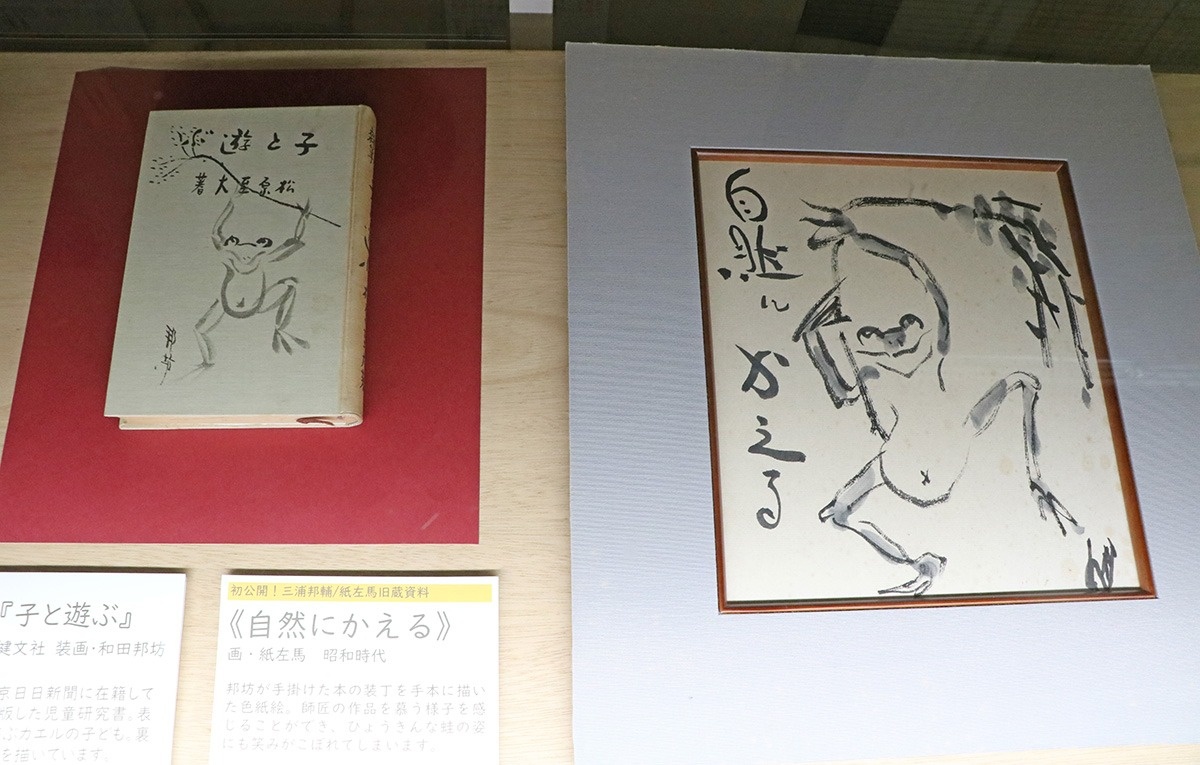 子と遊ぶ
松原至大著
自然に
かえる
『子と遊ぶ』
健文社 装画・和田邦坊
京日日新聞に在籍して
版した児童研究書。表
ぶカエルの子ども。裏
を描いています。
初公開！三浦邦輔/紙左馬旧蔵資料
《自然にかえる》
画・紙左馬　昭和時代
邦坊が手掛けた本の装丁を手本に描い
た色紙絵。師匠の作品を慕う様子を感
じることができ、ひょうきんな蛙の姿
にも笑みがこぼれてしまいます。